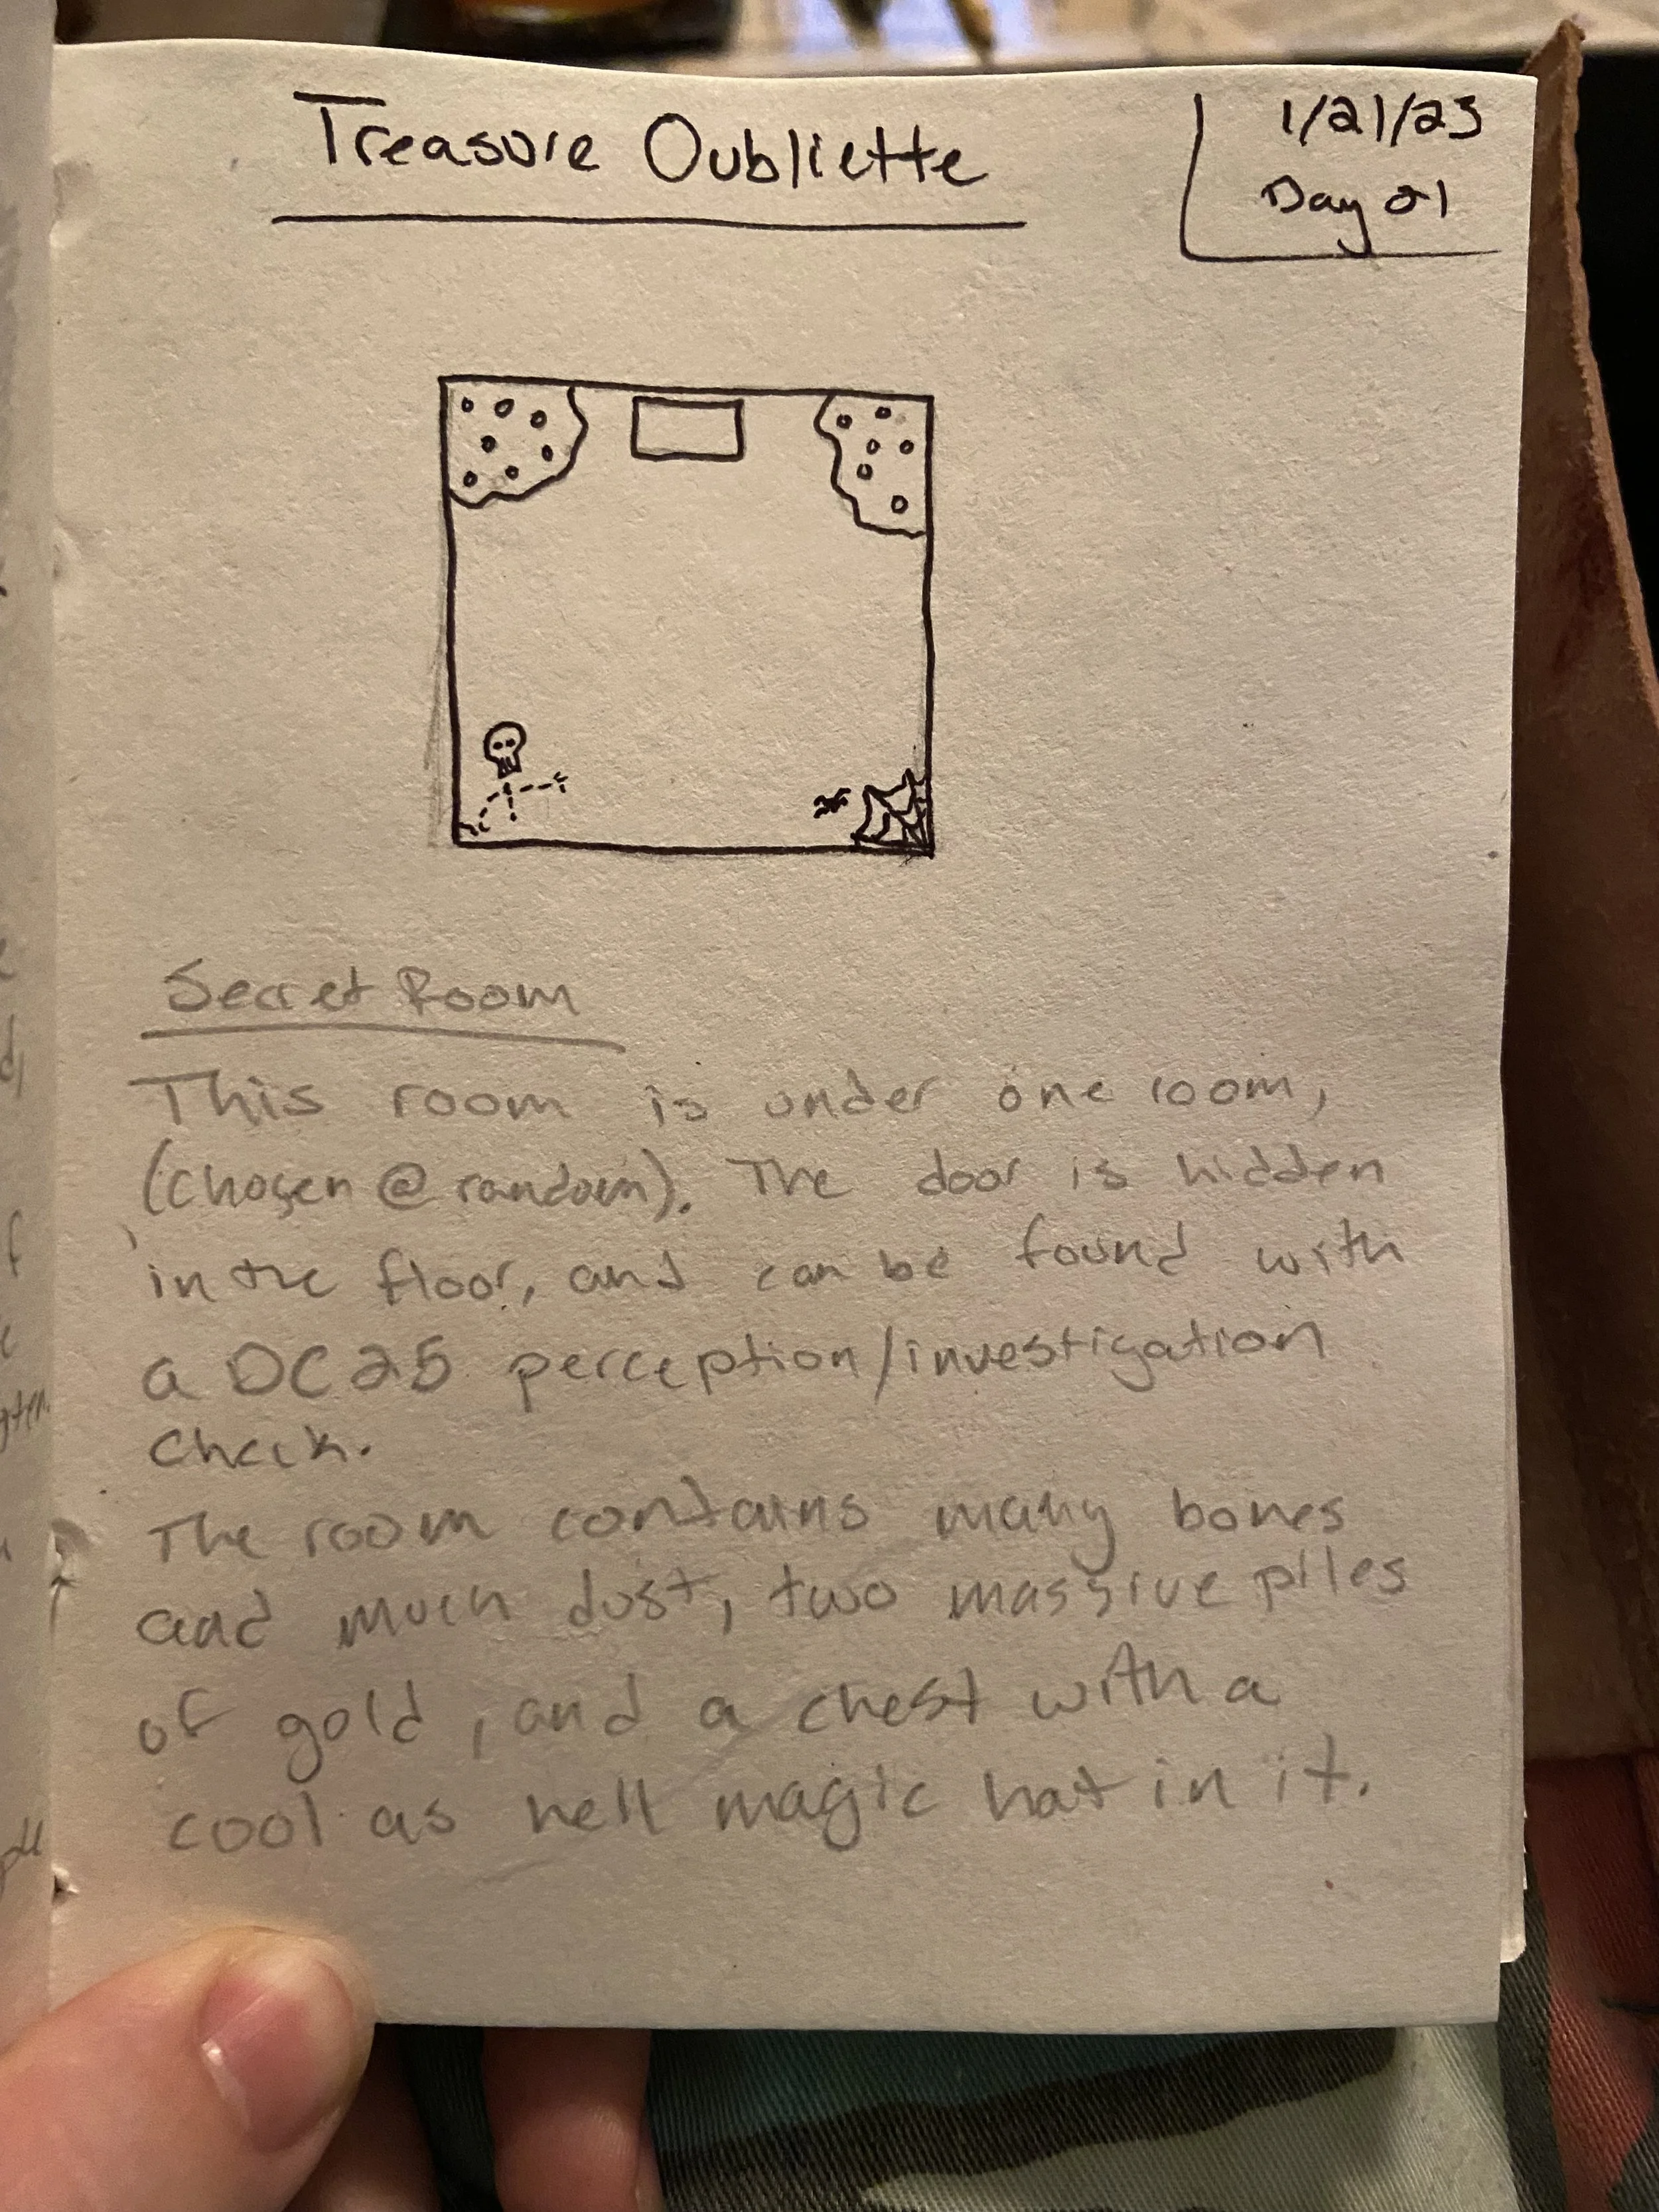 Treasure Oubliette
1/21/23
Day 21
Secret Room
This room is under one room,
(chosen @ random). The door is hidden
in the floor, and can be found with
a DC25 perception/investigation
check.
The room contains many bones
and much dust, two massive piles
of gold, and a chest with a
cool as hell magic hat in it.